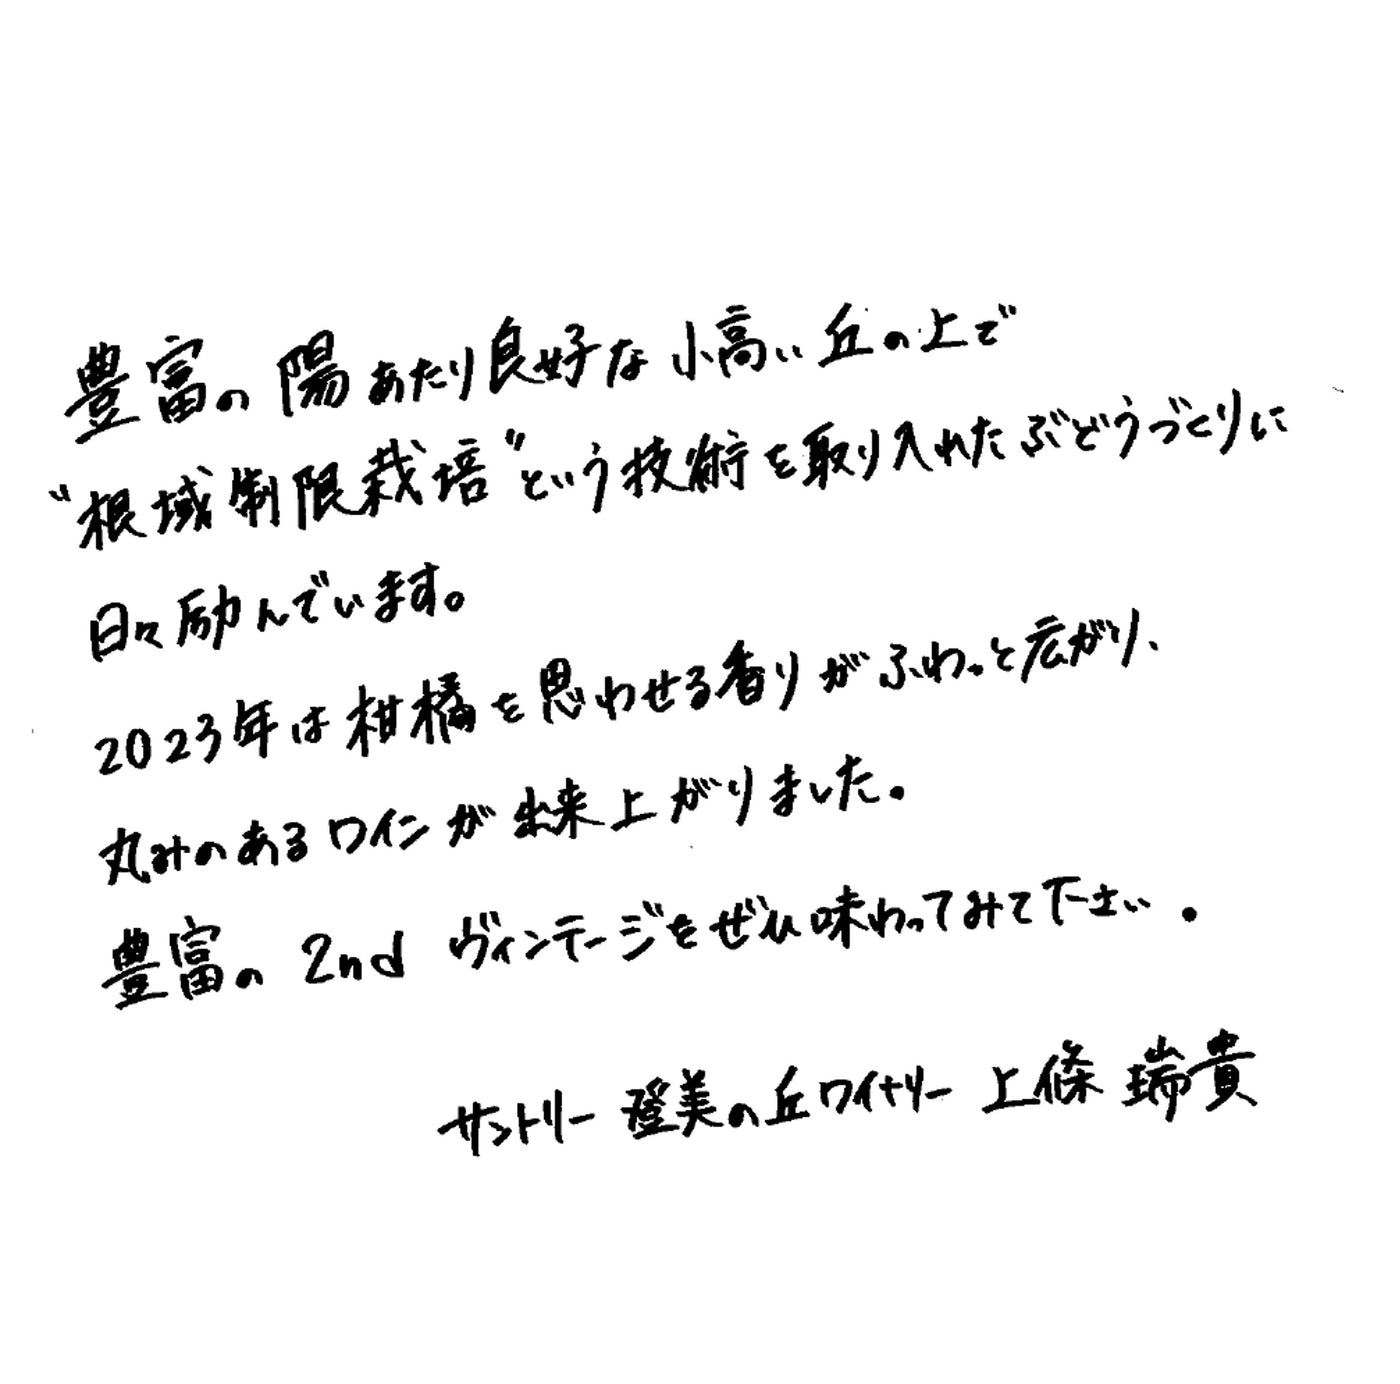 豊富の陽あたり良好な小高い丘の上で
"根域制限栽培"という技術を取り入れたぶどうづくりに
日々励んでいます。
2023年は柑橘を思わせる香りがふわっと広がり、
丸みのあるワインが出来上がりました。
豊富の 2nd ヴィンテージをぜひ味わってみて下さい。
サントリー 登美の丘ワイナリー 上條 瑞貴